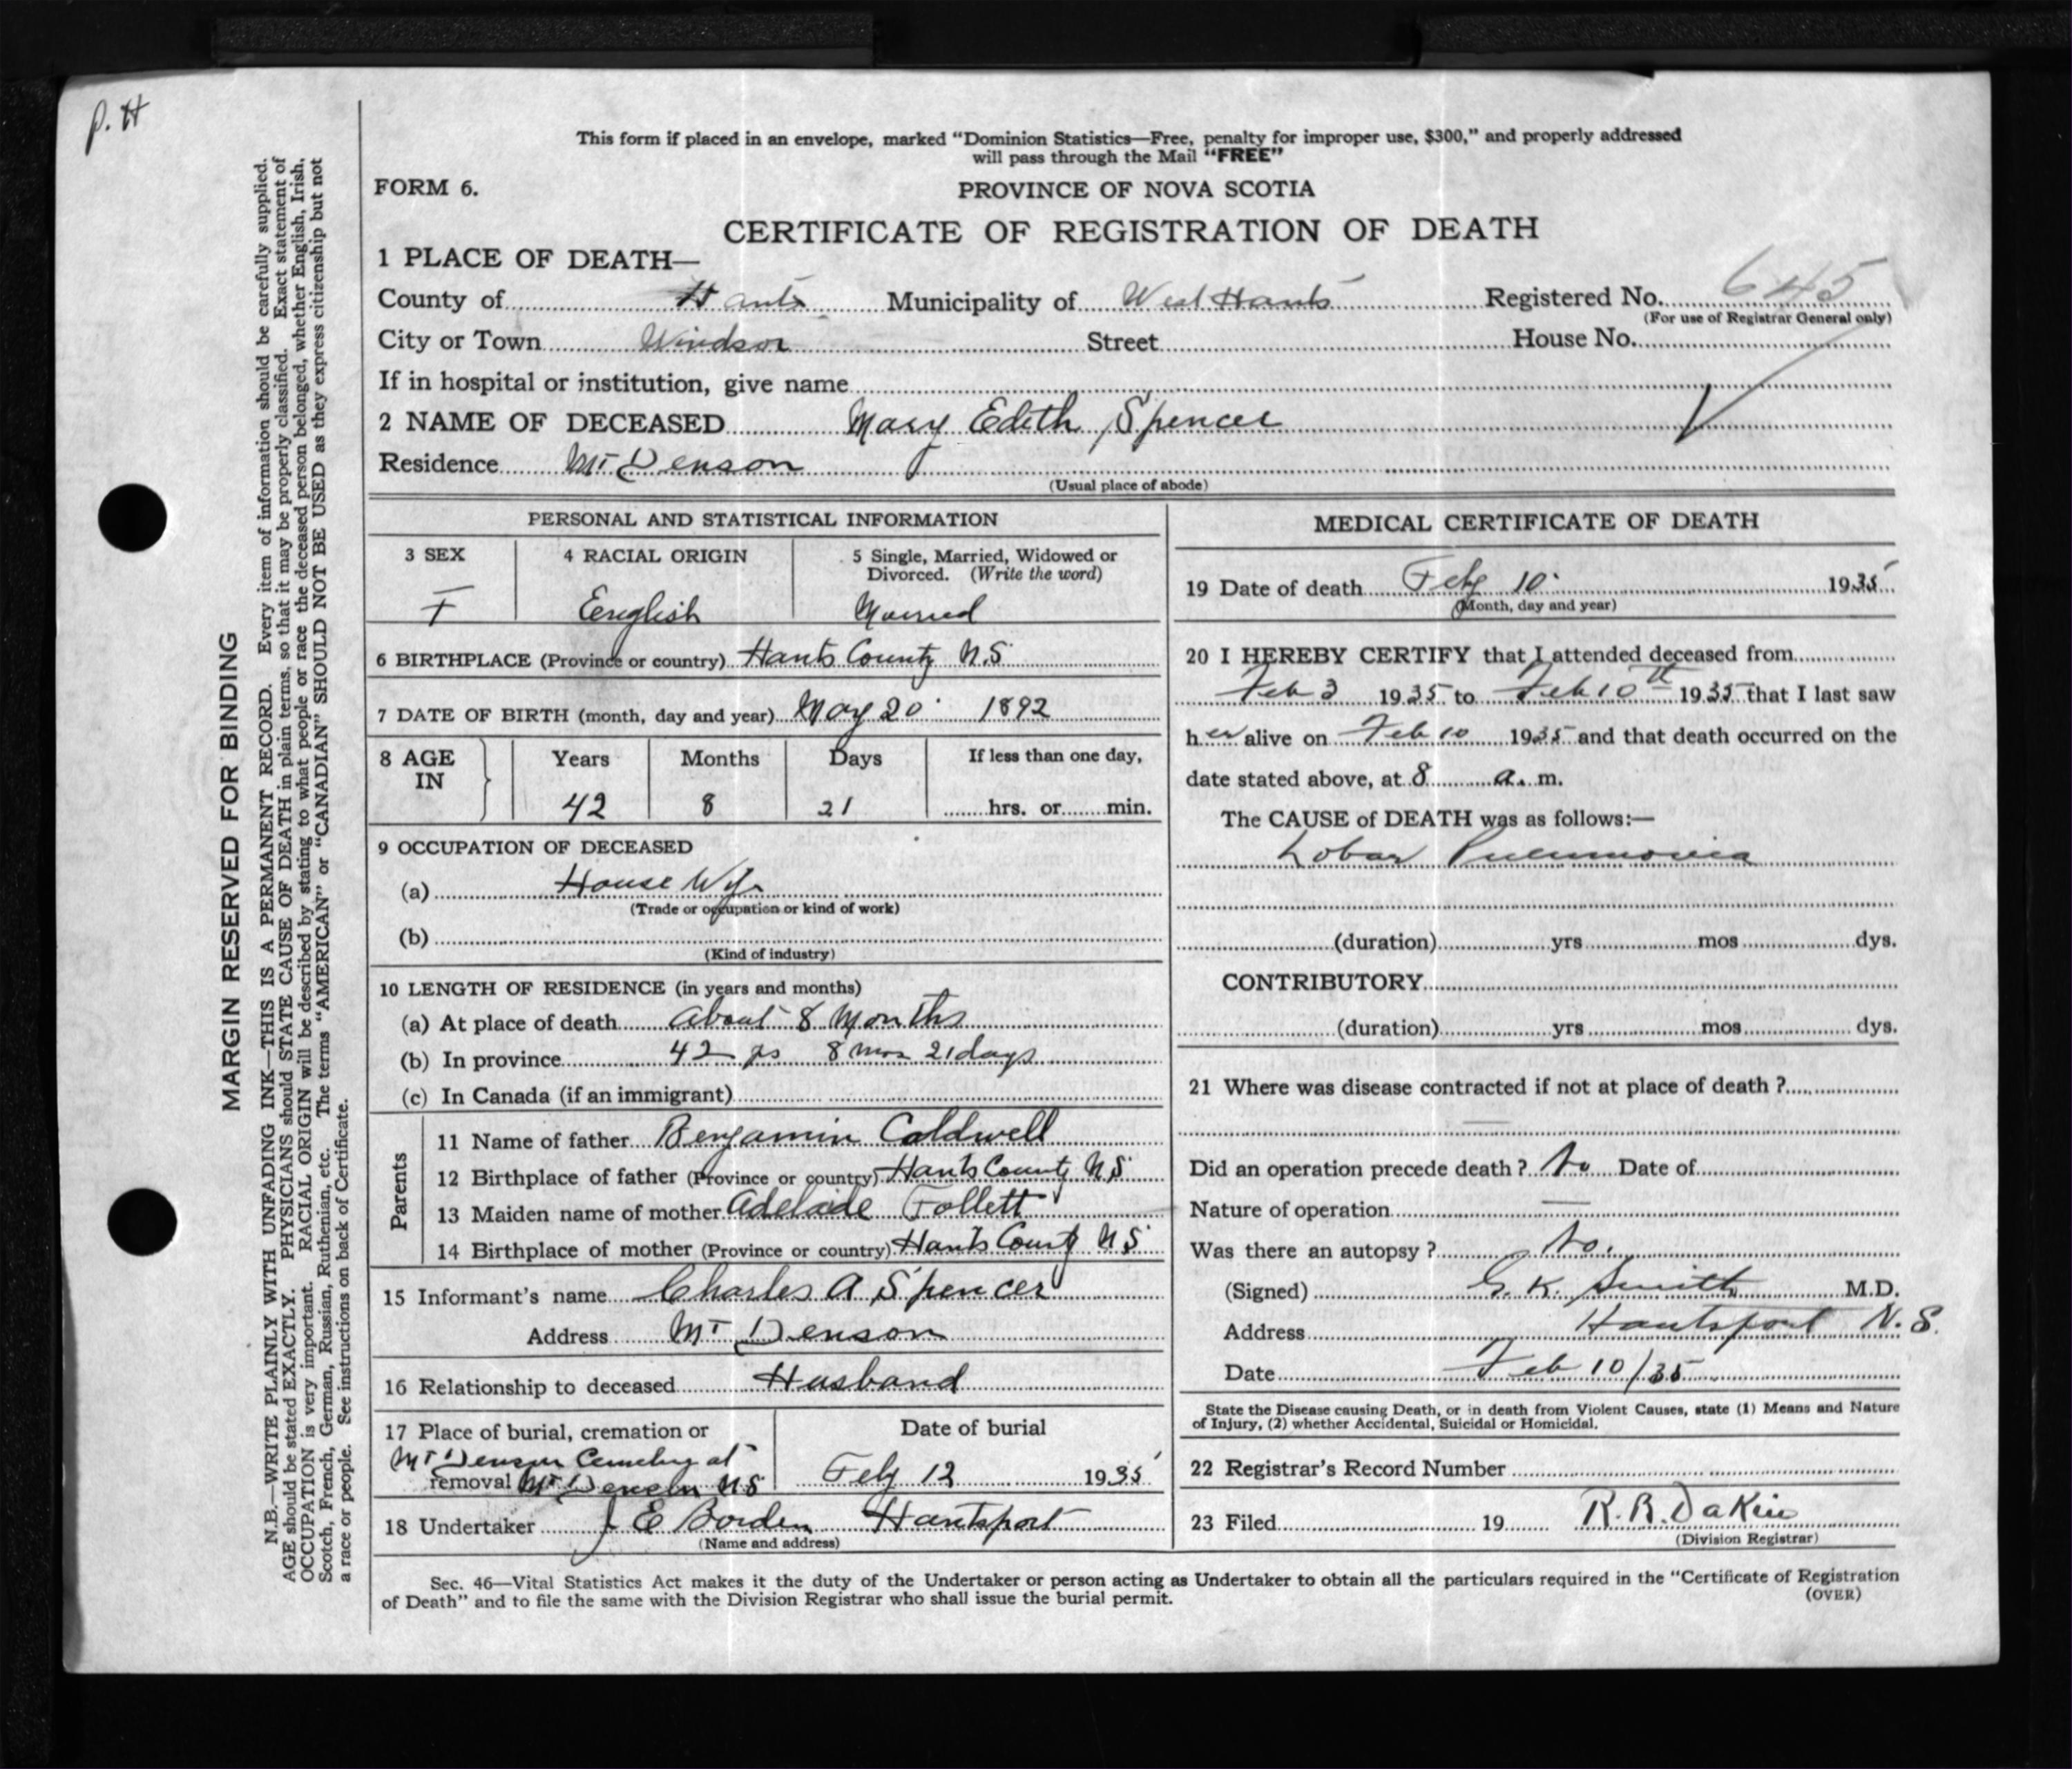 P. H
This form if placed in an envelope, marked “Dominion Statistics—Free, penalty for improper use, $300,” and properly addressed
will pass through the Mail “FREE”
FORM 6.
PROVINCE OF NOVA SCOTIA
CERTIFICATE OF REGISTRATION OF DEATH
1 PLACE OF DEATH—
County of Hants Municipality of West Hants Registered No. 645
(For use of Registrar General only)
City or Town Windsor Street House No.
If in hospital or institution, give name
2 NAME OF DECEASED Mary Edith Spencer
Residence Mt Denson
(Usual place of abode)
PERSONAL AND STATISTICAL INFORMATION
3 SEX 4 RACIAL ORIGIN 5 Single, Married, Widowed or
Divorced. (Write the word)
F English Married
6 BIRTHPLACE (Province or country) Hants County N.S
7 DATE OF BIRTH (month, day and year) May 20 1892
8 AGE IN Years Months Days If less than one day,
42 8 21 hrs. or min.
9 OCCUPATION OF DECEASED
(a) House Wife
(Trade or occupation or kind of work)
(b)
(Kind of industry)
10 LENGTH OF RESIDENCE (in years and months)
(a) At place of death About 8 Months
(b) In province 42 ys 8 mos 21 days
(c) In Canada (if an immigrant)
Parents
11 Name of father Benjamin Caldwell
12 Birthplace of father (Province or country) Hants County N.S.
13 Maiden name of mother Adelaide Follett
14 Birthplace of mother (Province or country) Hants County N S
15 Informant's name Charles A Spencer
Address Mt Denson
16 Relationship to deceased Husband
17 Place of burial, cremation or Date of burial
Mt Denson Cemetery at
removal Mt Denson N S Feby 12 1935
18 Undertaker J E Borden Hantsport
(Name and address)
MEDICAL CERTIFICATE OF DEATH
19 Date of death Feby 10 1935
(Month, day and year)
20 I HEREBY CERTIFY that I attended deceased from
Feb 3 1935 to Feb 10th 1935 that I last saw
her alive on Feb 10 1935 and that death occurred on the
date stated above, at 8 a. m.
The CAUSE of DEATH was as follows:—
Lobar Pneumonia
(duration) yrs mos dys.
CONTRIBUTORY
(duration) yrs mos dys.
21 Where was disease contracted if not at place of death ?
Did an operation precede death ? No Date of
Nature of operation —
Was there an autopsy ? No.
(Signed) G. K. Smith M.D.
Address Hantsport N. S.
Date Feb 10/35
State the Disease causing Death, or in death from Violent Causes, state (1) Means and Nature
of Injury, (2) whether Accidental, Suicidal or Homicidal.
22 Registrar's Record Number
23 Filed 19 R. B. Dakin
(Division Registrar)
Sec. 46—Vital Statistics Act makes it the duty of the Undertaker or person acting as Undertaker to obtain all the particulars required in the “Certificate of Registration
of Death” and to file the same with the Division Registrar who shall issue the burial permit.
(OVER)
MARGIN RESERVED FOR BINDING
N.B.—WRITE PLAINLY WITH UNFADING INK—THIS IS A PERMANENT RECORD. Every item of information should be carefully supplied.
AGE should be stated EXACTLY. PHYSICIANS should STATE CAUSE OF DEATH in plain terms, so that it may be properly classified. Exact statement of
OCCUPATION is very important. RACIAL ORIGIN will be described by stating to what people or race the deceased person belonged, whether English, Irish,
Scotch, French, German, Russian, Ruthenian, etc. The terms “AMERICAN” or “CANADIAN” SHOULD NOT BE USED as they express citizenship but not
a race or people. See instructions on back of Certificate.